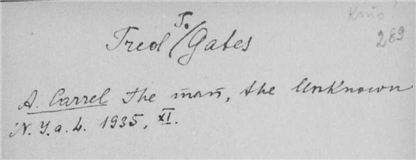 289
Fred T. Gates
A. Carrel The man, the Unknown
N. Y. a. L. 1935, XI.